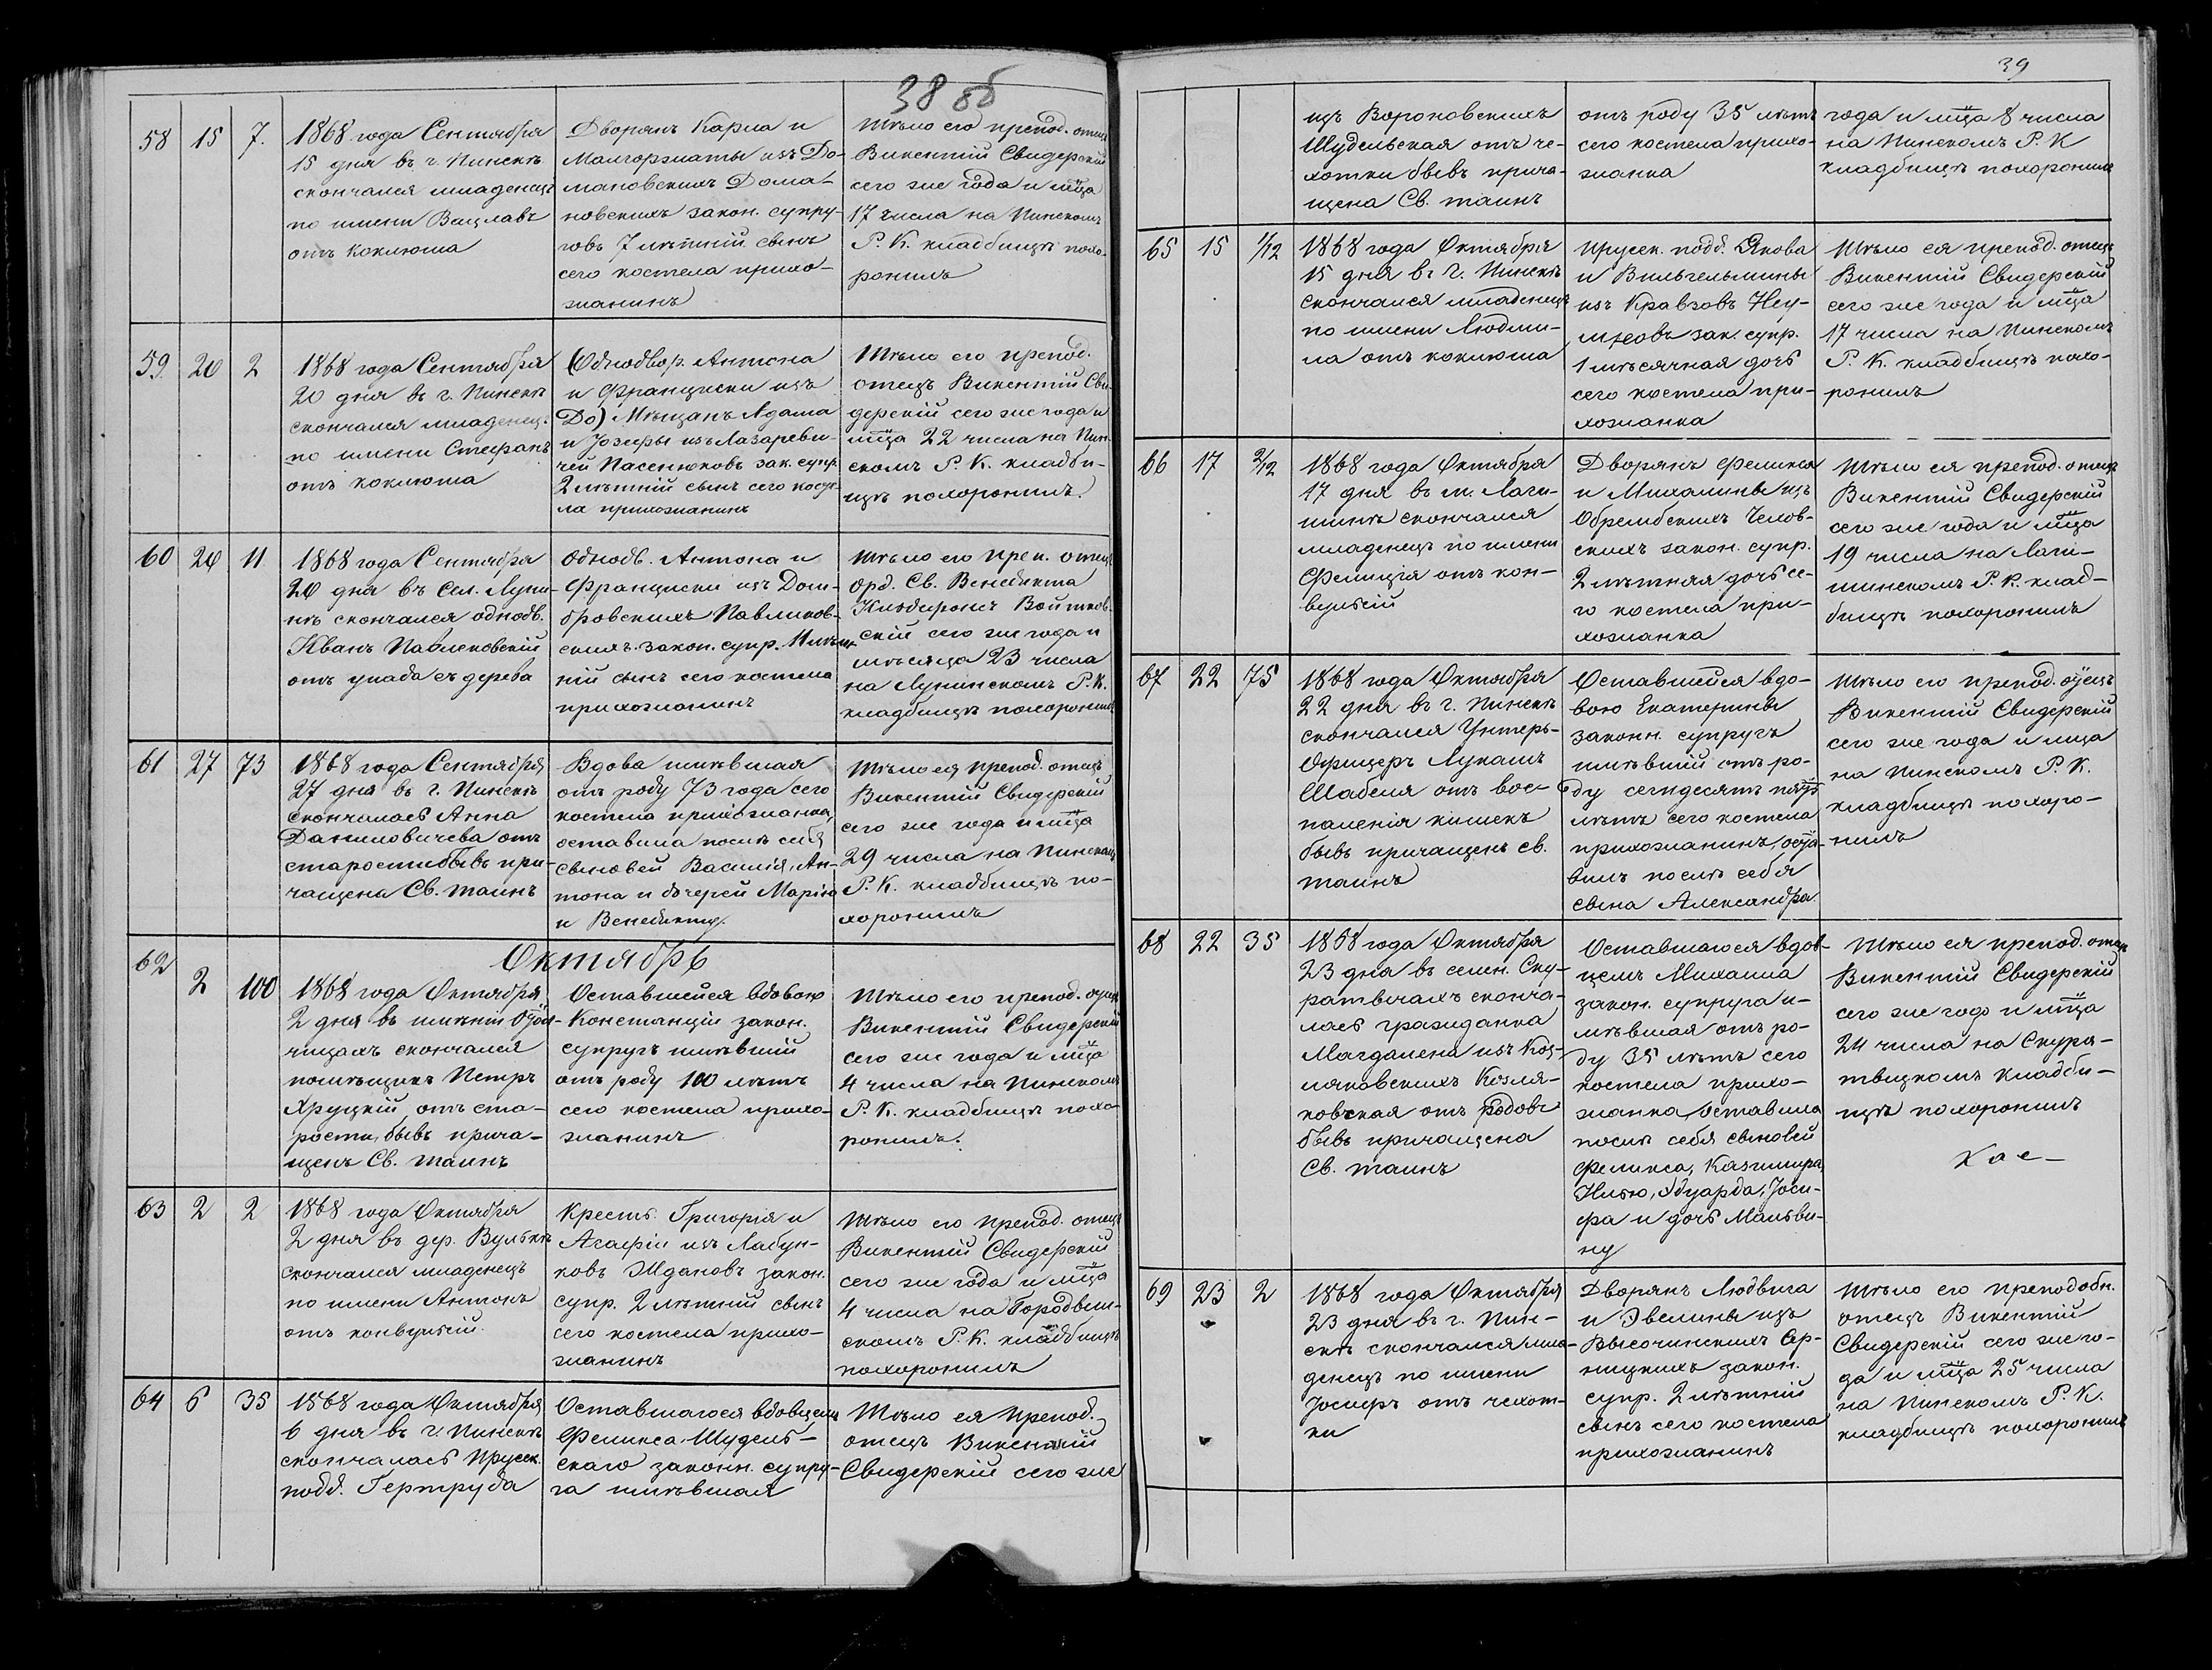 38 об
58 15 7.
1868 года Сентября
15 дня въ г. Пинскѣ
скончался младенецъ
по имени Вацлавъ
отъ коклюша
Дворянъ Карла и
Малгоржаты изъ До-
мановскихъ Дома-
новскихъ закон. супру-
говъ 7 лѣтній сынъ
сего костела прихо-
жанинъ
Тѣло его препод. отецъ
Викентій Свидерскій
сего же года и мѣца
17 числа на Пинскомъ
Р. К. кладбищѣ похо-
ронилъ
59 20 2
1868 года Сентября
20 дня въ г. Пинскѣ
скончался младенец.
по имени Стефанъ
отъ коклюша
(Однодвор. Антона
и Франциски изъ
До) Мѣщанъ Адама
и Јозефы изъ Лазареви-
чей Пасенюковъ зак. супр.
2 лѣтній сынъ сего косте-
ла прихожанинъ
Тѣло его препод.
отецъ Викентій Сви-
дерскій сего же года и
мѣца 22 числа на Пин-
скомъ Р. К. кладби-
щѣ похоронилъ.
60 20 11
1868 года Сентября
20 дня въ сел. Луни-
нѣ скончался однодв.
Иванъ Павликовскій
отъ упада съ дерева
Однодв. Антона и
Франциски изъ Дом-
бровскихъ Павликов-
скихъ закон. супр. 11 лѣт-
ній сынъ сего костела
прихожанинъ
Тѣло его преп. отецъ
орд. Св. Бенедикта
Войтков-
скій сего же года и
мѣсяца 23 числа
на Лунинскомъ Р. К.
кладбищѣ похоронилъ
61 27 73
1868 года Сентября
27 дня въ г. Пинскѣ
скончалась Анна
Даниловичева отъ
старости бывъ при-
чащена Св. таинъ
Вдова имѣвшая
отъ роду 73 года сего
костела прихожанка,
оставила послѣ себя
сыновей Василія, Ан-
тона и дочерей Марію
и Бенедикту.
Тѣло ея препод. отецъ
Викентій Свидерскій
сего же года и мѣца
29 числа на Пинскомъ
Р. К. кладбищѣ по-
хоронилъ
Октябрь
62 2 100
1868 года Октября
2 дня въ имѣніи
чицахъ скончался
помѣщикъ Петръ
Хруцкій, отъ ста-
рости, бывъ прича-
щенъ Св. таинъ
Оставшейся вдовою
Констанціи закон.
супругъ имѣвшій
отъ роду 100 лѣтъ
сего костела прихо-
жанинъ
Тѣло его препод. отецъ
Викентій Свидерскій
сего же года и мѣца
4 числа на Пинскомъ
Р. К. кладбищѣ похо-
ронилъ.
63 2 2
1868 года Октября
2 дня въ дер. Вулькѣ
скончался младенецъ
по имени Антонъ
отъ конвульсій.
Крестъ. Григорія и
Агафіи изъ Лабун-
ковъ Ждановъ закон.
супр. 2 лѣтній сынъ
сего костела прихо-
жанинъ
Тѣло его препод. отецъ
Викентій Свидерскій
сего же года и мѣца
4 числа на
скомъ Р. К. кладбищѣ
похоронилъ
64 6 35
1868 года Октября
6 дня въ г. Пинскѣ
скончалась Прусск.
подд. Гертруда
Оставшагося вдовцемъ
Феликса Шудель-
скаго законн. супру-
га имѣвшая
Тѣло ея препод.
отецъ Викентій
Свидерскій сего же
39
изъ Вороновскихъ
Шудельская отъ че-
хотки бывъ прича-
щена Св. таинъ
отъ роду 35 лѣтъ
сего костела прихо-
жанка
года и мѣца 8 числа
на Пинскомъ Р. К
кладбищѣ похоронилъ
65 15 1/12
1868 года Октября
15 дня въ г. Пинскѣ
скончался младенецъ
по имени Людми-
ла отъ коклюша
Прусск. подд. Якова
и Вильгельмины
изъ Кравзовъ Ней-
зак. супр.
1 мѣсячная дочь
сего костела при-
хожанка
Тѣло ея препод. отецъ
Викентій Свидерскій
сего же года и мѣца
17 числа на Пинскомъ
Р. К. кладбищѣ похо-
ронилъ
66 17 2/12
1868 года Октября
17 дня въ м. Логи-
шинѣ скончался
младенецъ по имени
Фелиція отъ кон-
вульсій
Дворянъ Феликса
и Михалины изъ
Обрембскихъ Челов-
скихъ закон. супр.
2 лѣтняя дочь се-
го костела при-
хожанка
Тѣло ея препод. отецъ
Викентій Свидерскій
сего же года и мѣца
19 числа на Логи-
шинскомъ Р. К. клад-
бищѣ похоронилъ
67 22 75
1868 года Октября
22 дня въ г. Пинскѣ
скончался Унтеръ-
Офицеръ Лукашъ
Шабеля отъ вос-
паленія кишекъ
бывъ причащенъ св.
таинъ
Оставшейся вдо-
вою Екатерины
законн. супругъ
имѣвшій отъ ро-
ду семдесятъ пять
лѣтъ сего костела
прихожанинъ, оста-
вилъ послѣ себя
сына Александра.
Тѣло его препод. отецъ
Викентій Свидерскій
сего же года и мѣца
на Пинскомъ Р. К.
кладбищѣ похоро-
нилъ
68 22 35
1868 года Октября
23 дня въ селен. Ску-
ратвичахъ сконча-
лась гражданка
Магдалена изъ Коз-
ляковскихъ Козля-
ковская отъ родовъ
бывъ причащена
Св. таинъ
Оставшагося вдов-
цемъ Михаила
закон. супруга и-
мѣвшая отъ ро-
ду 35 лѣтъ сего
костела прихо-
жанка оставила
послѣ себя сыновей
Феликса, Казимира,
Илью, Эдуарда, Јоси-
фа и дочь Мальви-
ну
Тѣло ея препод. отецъ
Викентій Свидерскій
сего же года и мѣца
24 числа на Скура-
твицкомъ кладби-
щѣ похоронилъ
69 23 2
1868 года Октября
23 дня въ г. Пин-
скѣ скончался мла-
денецъ по имени
Јосифъ отъ чехот-
ки
Дворянъ Людвига
и Эвелины изъ
Высочинскихъ Ор-
ницкихъ закон.
супр. 2 лѣтній
сынъ сего костела
прихожанинъ
Тѣло его преподобн.
отецъ Викентій
Свидерскій сего же го-
да и мѣца 25 числа
на Пинскомъ Р. К.
кладбищѣ похоронилъ